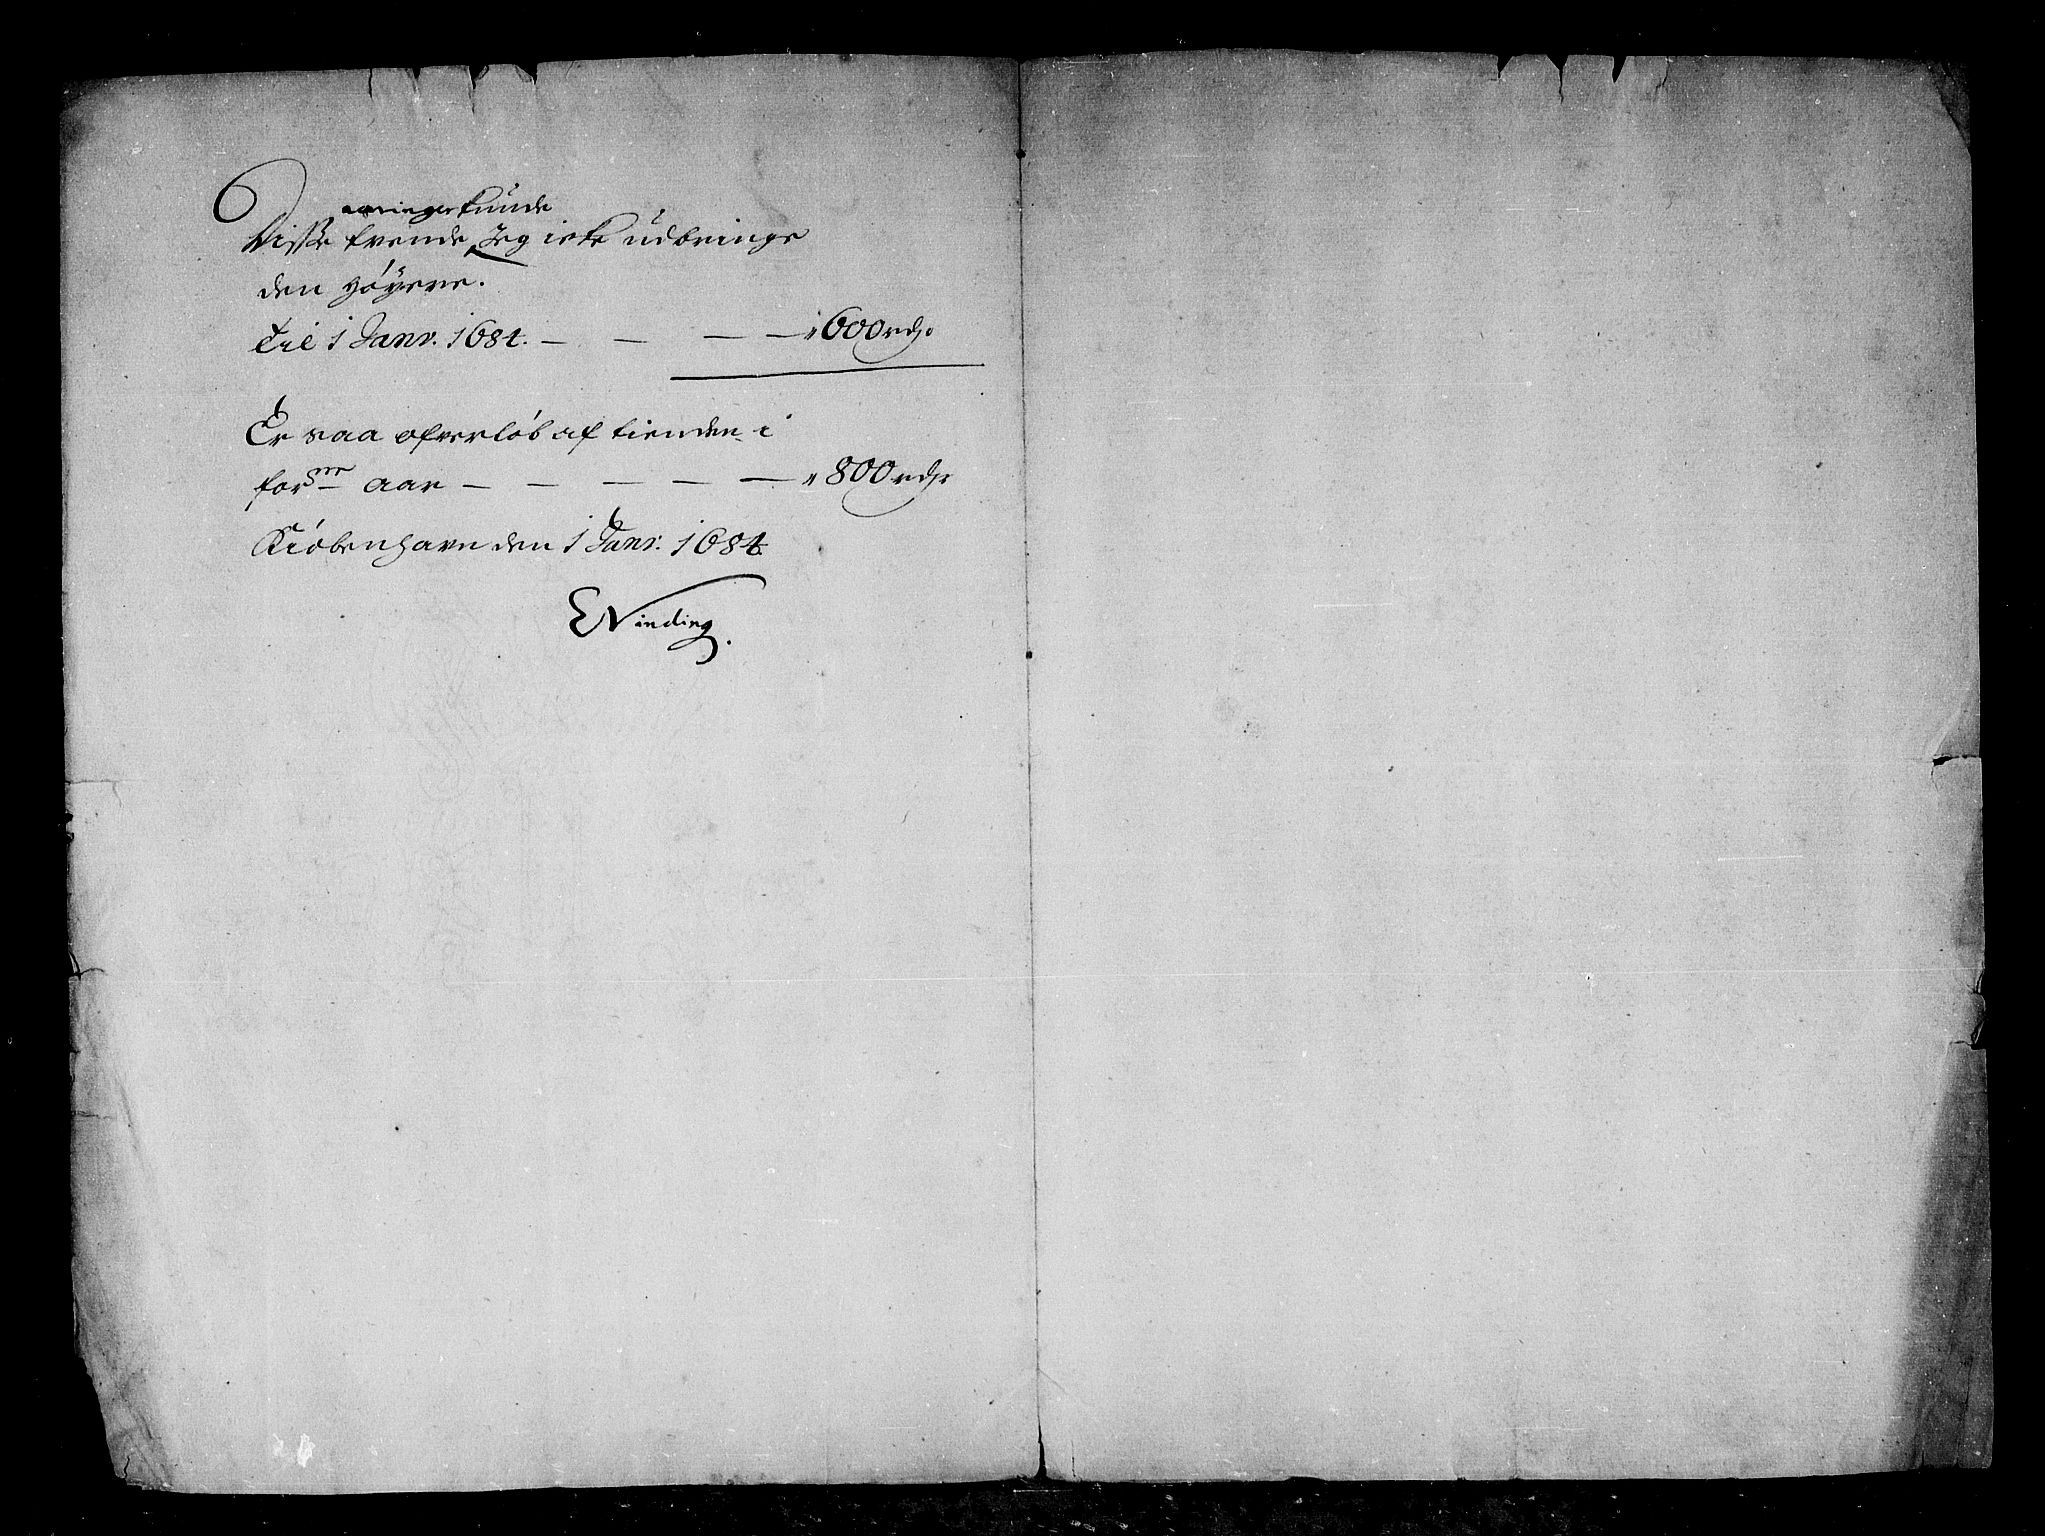 aaringer kunde
Disse trende Jeg icke udbringe
den høÿere.
til 1 Janv. 1684. — — — — 600 rdr.
Er saa ofverløb af tienden i
forsne aar — — — — — 800 rdr
Kiøbenhavn den 1 Janv. 1684.
EVinding.